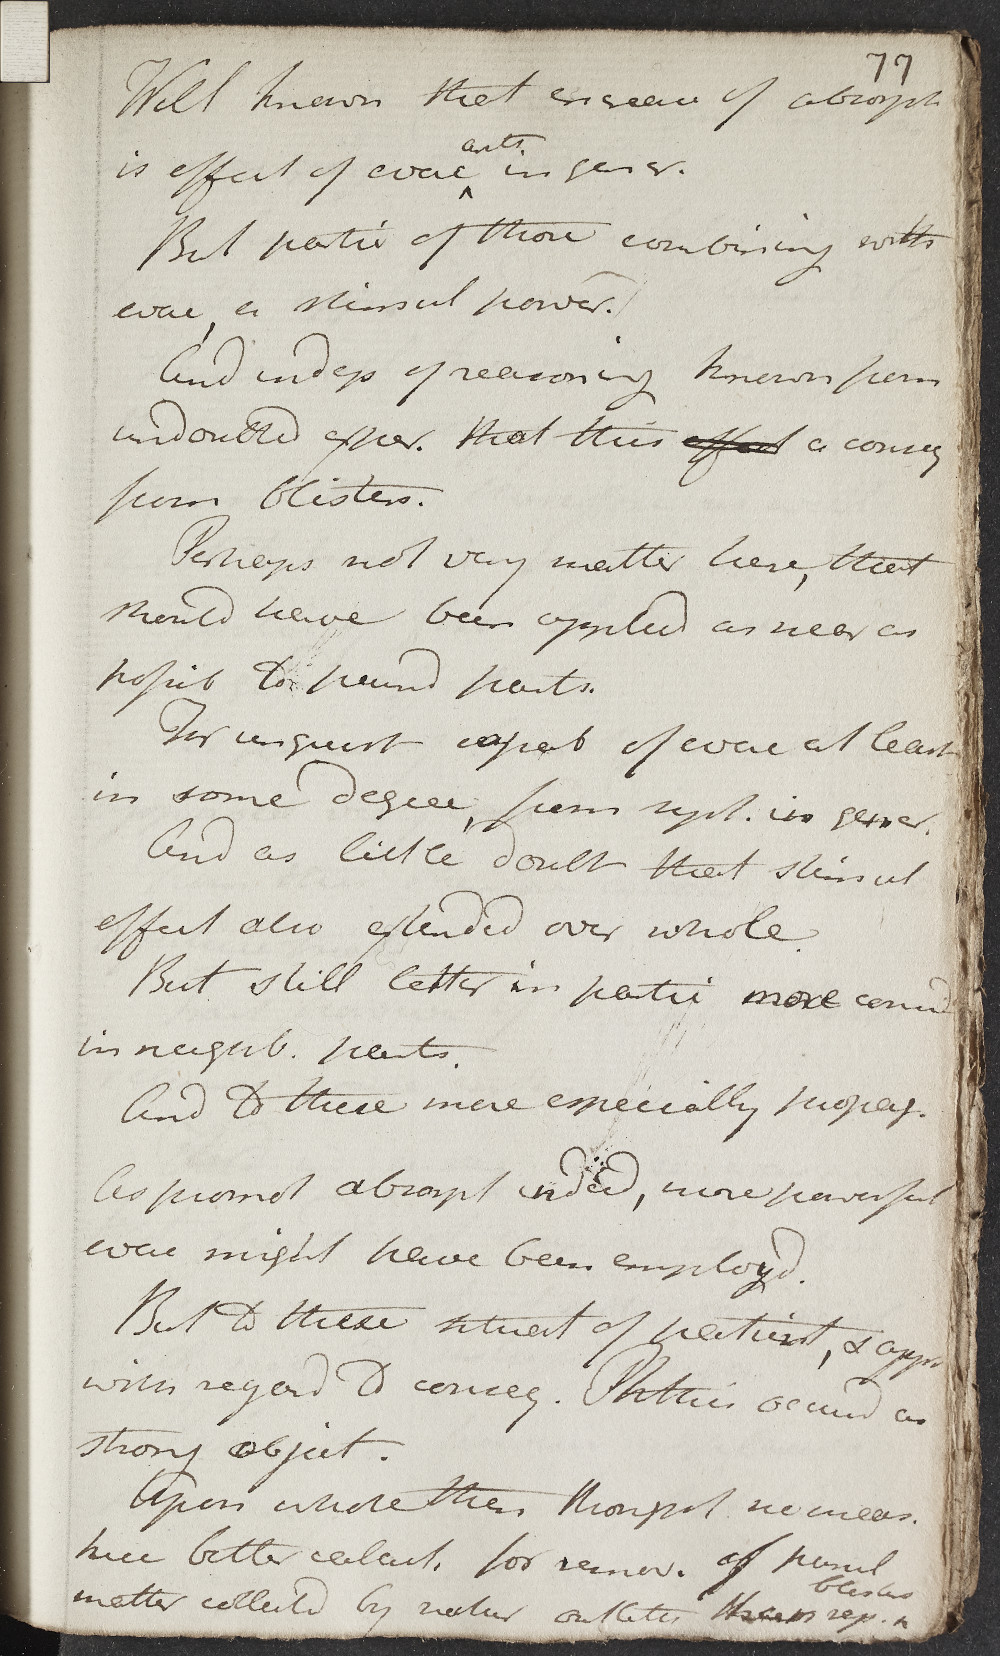 77
Well known that increase of absorpt
is effect of evac ants. in gener.
But partic of those combining with
evac, a stimul power.
And indep of reasoning known from
undoubted exper. that this effect a conseq
from blisters.
Perhaps not very matter here, that
should have been applied as near as
possib to parts.
For unquest capab of evac at least
in some degree, from syst. in gener.
And as little doubt that stimul
effect also extended over whole.
But still latter in partic more
in neighb. parts.
And to these more especially propag.
As promot absorpt indeed, more powerful
evac might have been employd.
But to these situat of patient, & appr
with regard to conseq. Phthisis occurrd as
strong object.
Upon whole then thought no meas.
here better calcul. for remov. of purul
matter collectd by natur outlets than rep. blisters